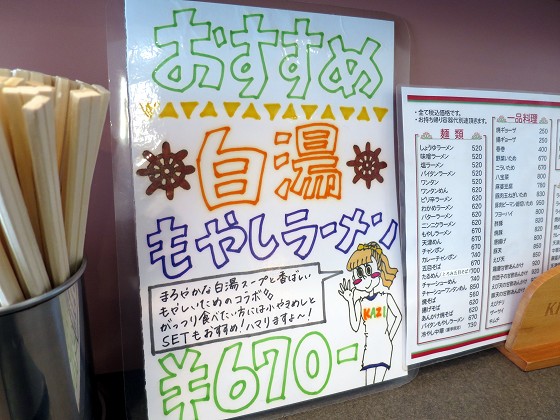 おすすめ
白湯
もやしラーメン
まろやかな白湯スープと香ばしい
もやしいためのコラボ!!
がっつり食べたい方には小やきめしと
SETもおすすめ!ハマりますよ〜!
KAZ
¥670-
・全て税込価格です。
・お持ち帰り容器代別途頂きます。
麺類
しょうゆラーメン 520
味噌ラーメン 520
塩ラーメン 520
バイタンラーメン 520
ワンタン 520
ワンタンめん 620
ピリ辛ラーメン 620
わかめラーメン 620
バターラーメン 620
ニンニクラーメン 620
もやしラーメン 670
天津めん 670
チャンポン 670
カレーチャンポン 740
五目そば 670
チャーシューめん
焼そば
揚げそば
あんかけ焼そば
バイタンもやしラーメン
冷やし中華
一品料理
焼ギョーザ 250
揚ギョーザ 250
春巻 400
野菜いため
ニラいため
八宝菜
麻婆豆腐
酢豚
焼豚
唐揚げ
エビ天
ザーサイ
キムチ